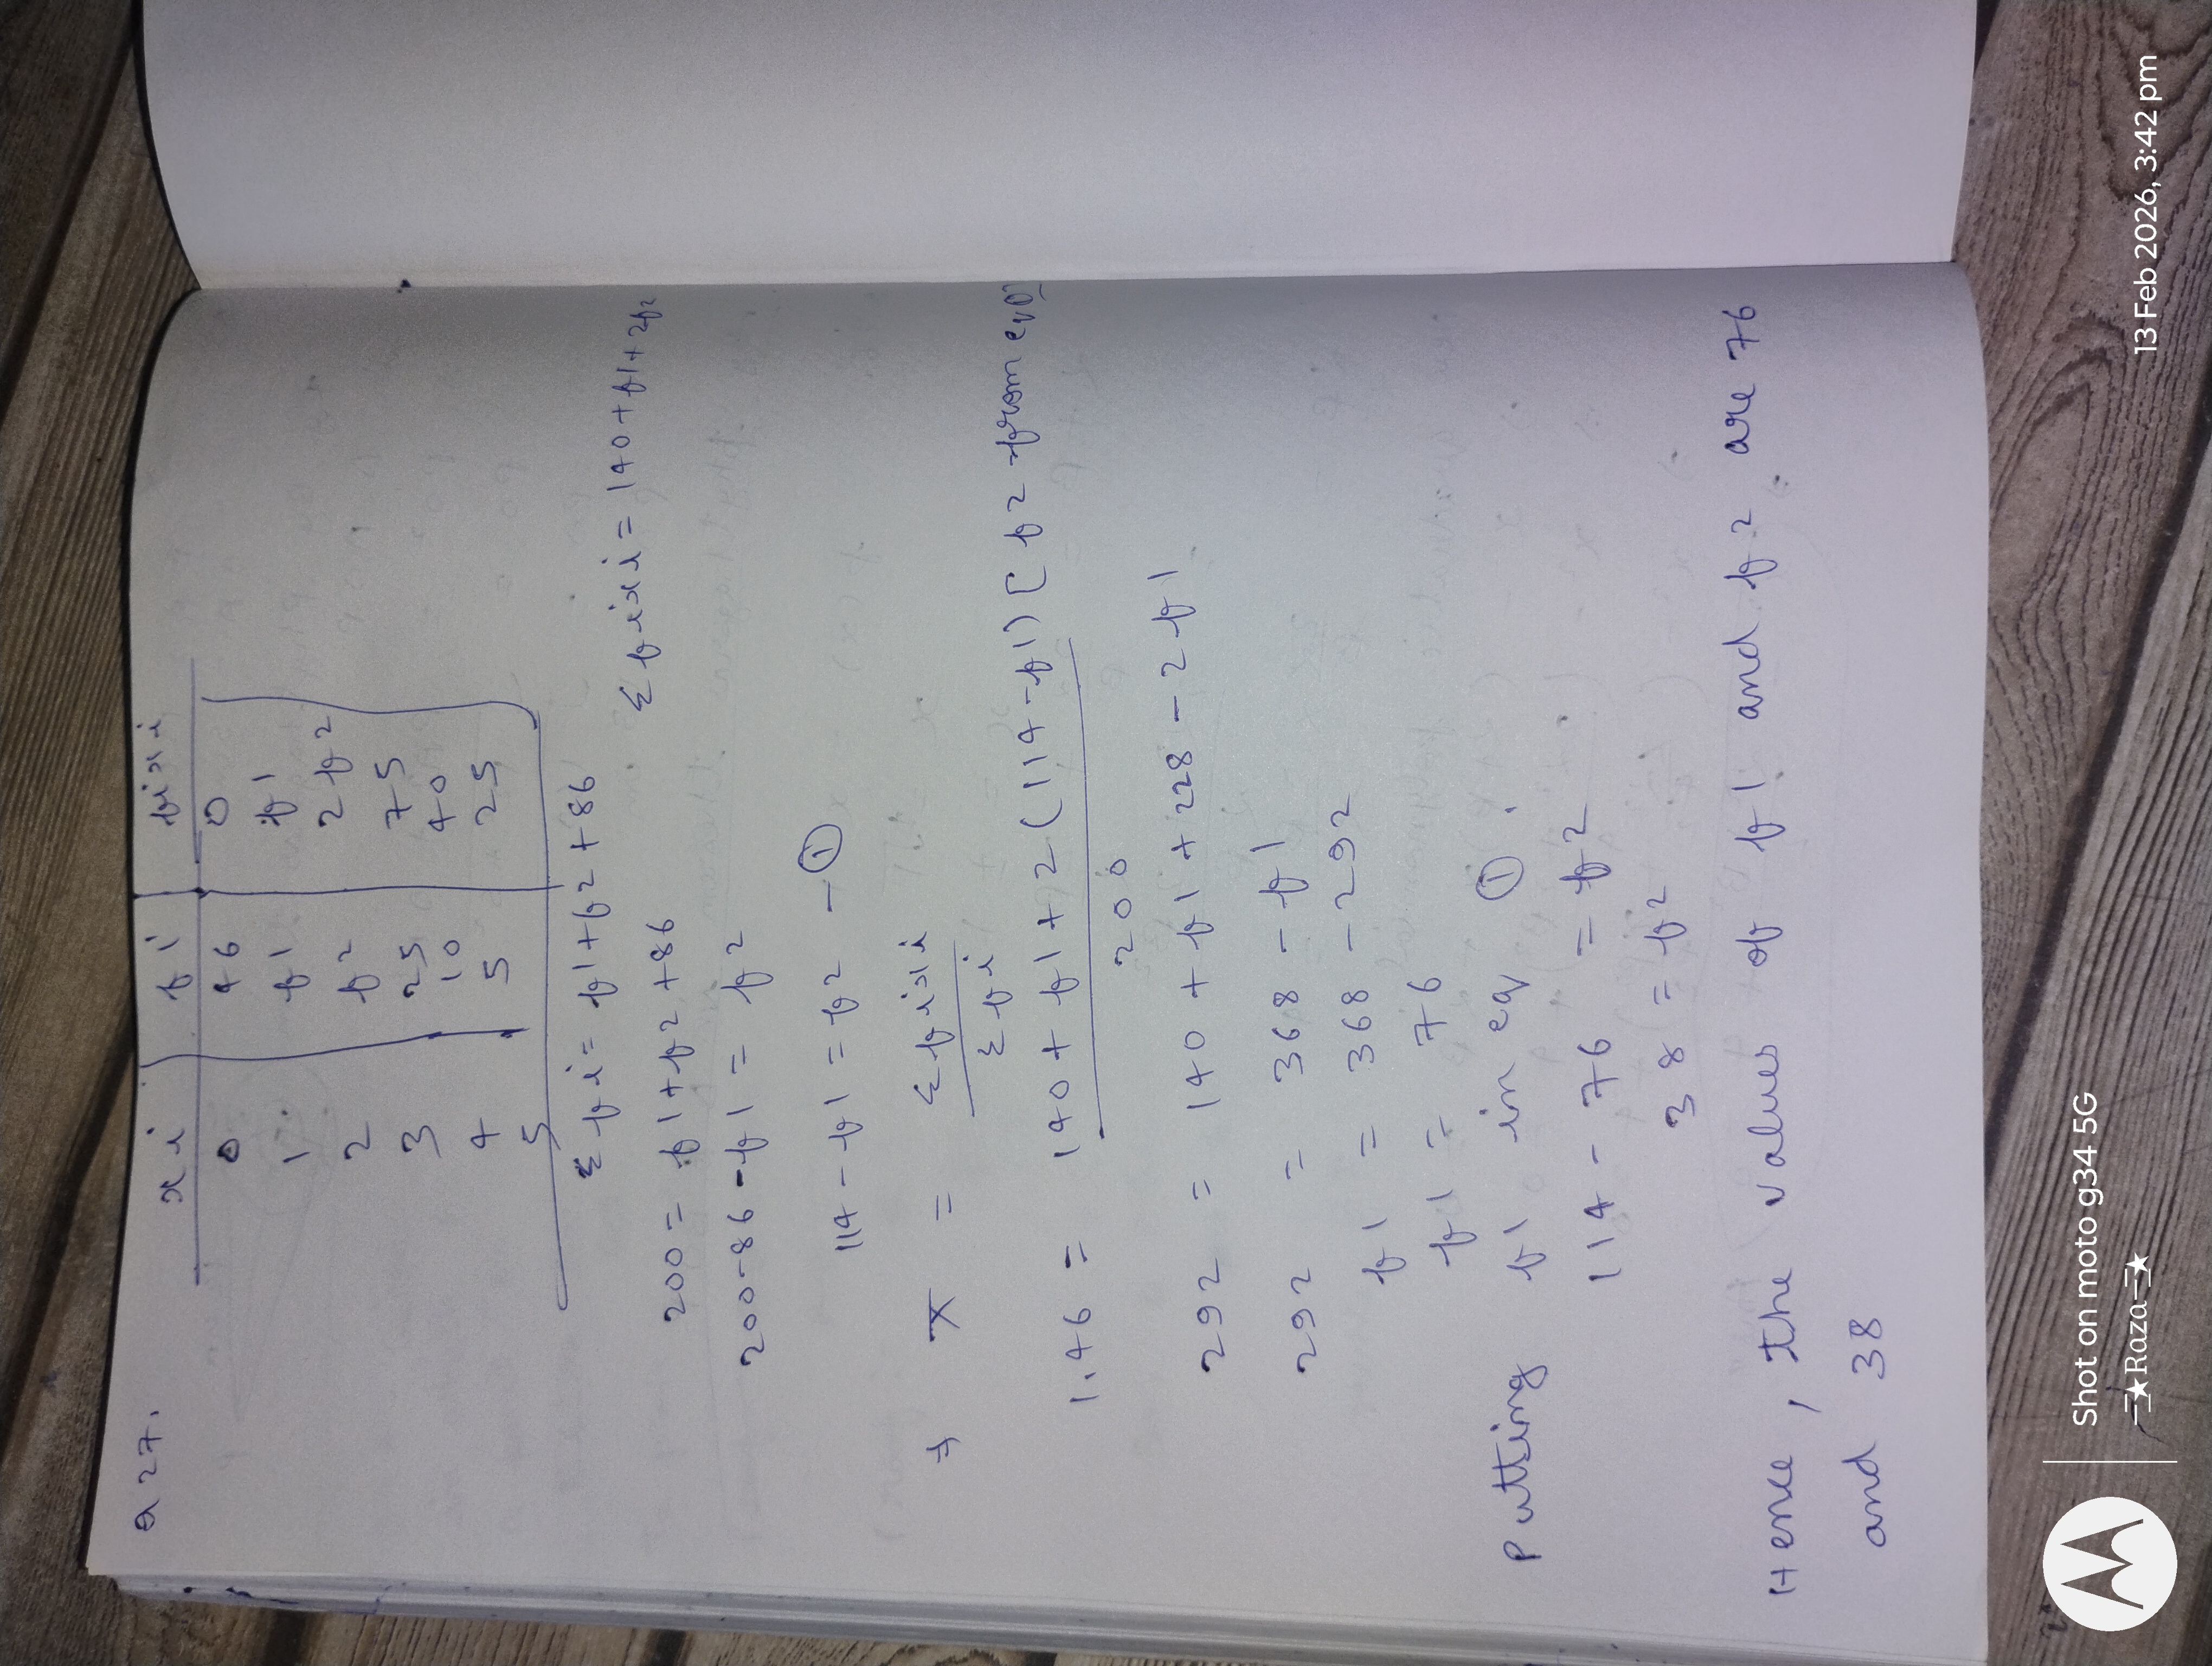 Q 27.
xi fi fixi
0 46 0
1 f1 f1
2 f2 2f2
3 25 75
4 10 40
5 5 25
Σfi = f1+f2+86
Σfixi = 140+f1+2f2
200 = f1+f2+86
200-86-f1 = f2
114-f1 = f2 -①
⇒ x̄ = Σfixi / Σfi
1.46 = 140+f1+2(114-f1) / 200 [f2 from eq ①]
292 = 140+f1+228-2f1
292 = 368-f1
f1 = 368-292
f1 = 76
Putting f1 in eq ①.
114-76 = f2
38 = f2
Hence, the values of f1 and f2 are 76
and 38
Shot on moto g34 5G
Raza
13 Feb 2026, 3:42 pm